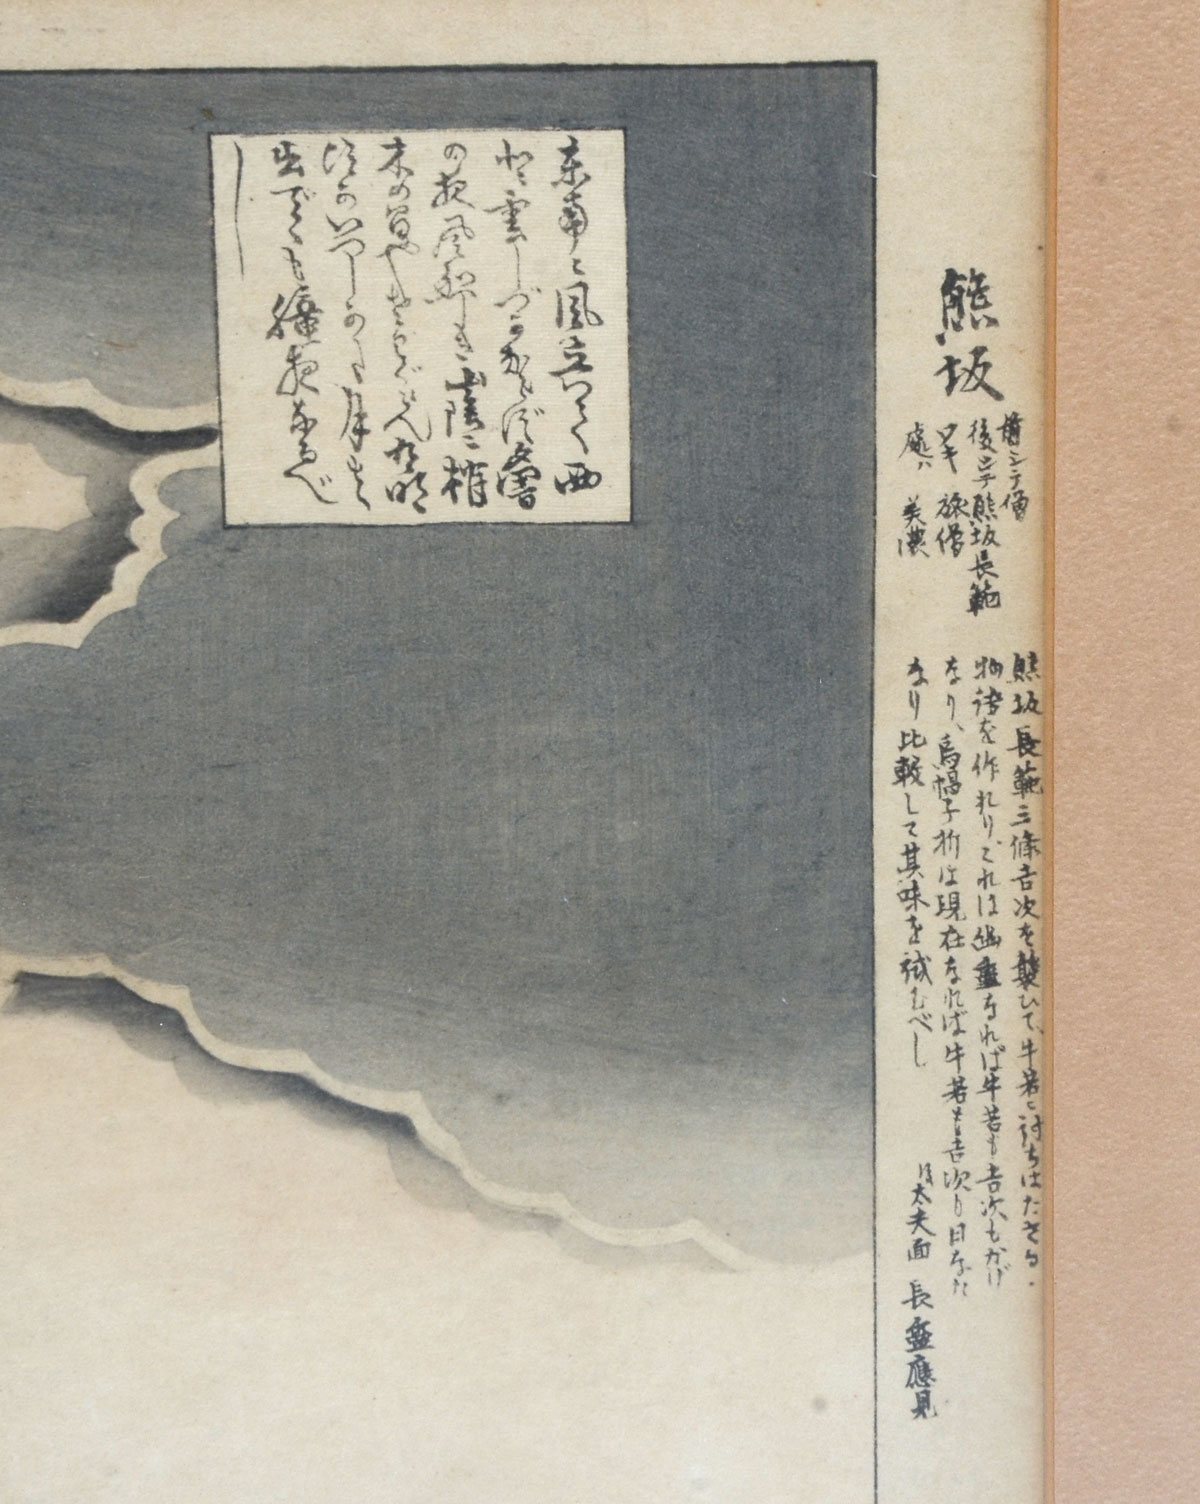 熊坂
前シテ僧
後シテ熊坂長範
ワキ 旅僧
處ハ 美濃
熊坂長範三條吉次を襲ひて、牛若に討ちはたさる、
物語を作れり、これは幽霊なれば牛若も吉次もかげ
なり、烏帽子折は現在なれば牛若も吉次も日なた
なり比較して其味を試むべし
後太夫面 長霊應見
東南に風立つて西
北に雲しづかならず夕闇
の夜風烈しき山陰に梢
木の間やさわぐらん有明
頃かいつしかの月は
出でても朧夜なるべ
し